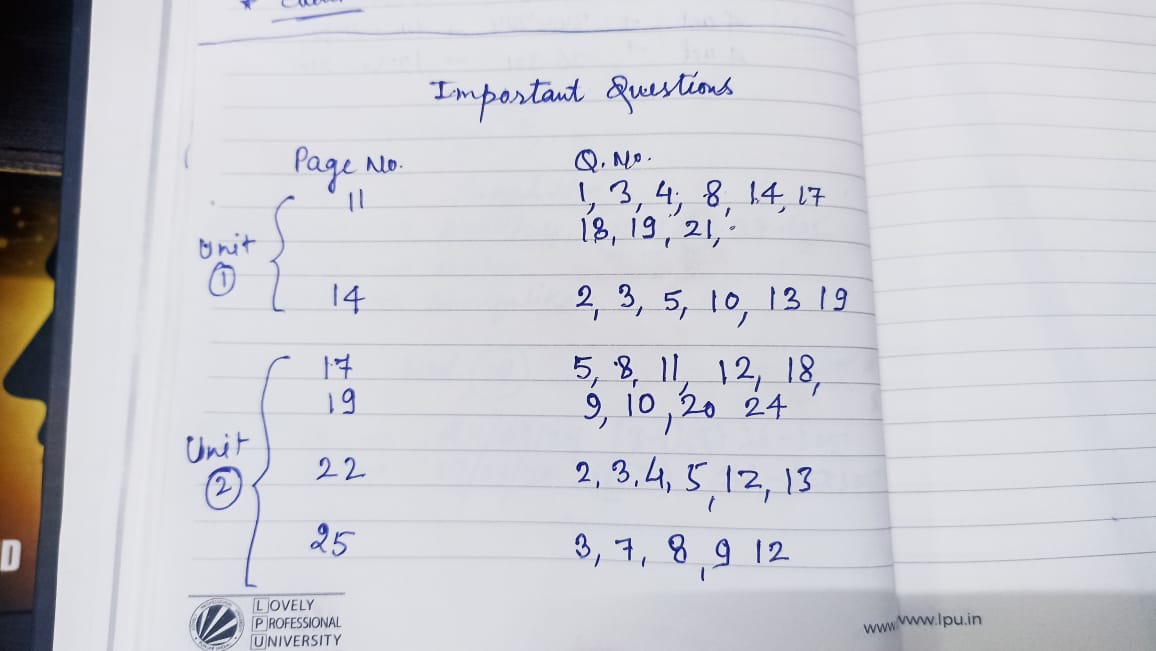 Important Questions
Page No. Q. No.
11 1, 3, 4, 8, 14, 17
18, 19, 21,
Unit
1
14 2, 3, 5, 10, 13 19
17 5, 8, 11, 12, 18,
19 9, 10, 20 24
Unit
2
22 2, 3, 4, 5, 12, 13
25 3, 7, 8, 9 12
LOVELY
PROFESSIONAL
UNIVERSITY
www.lpu.in
D